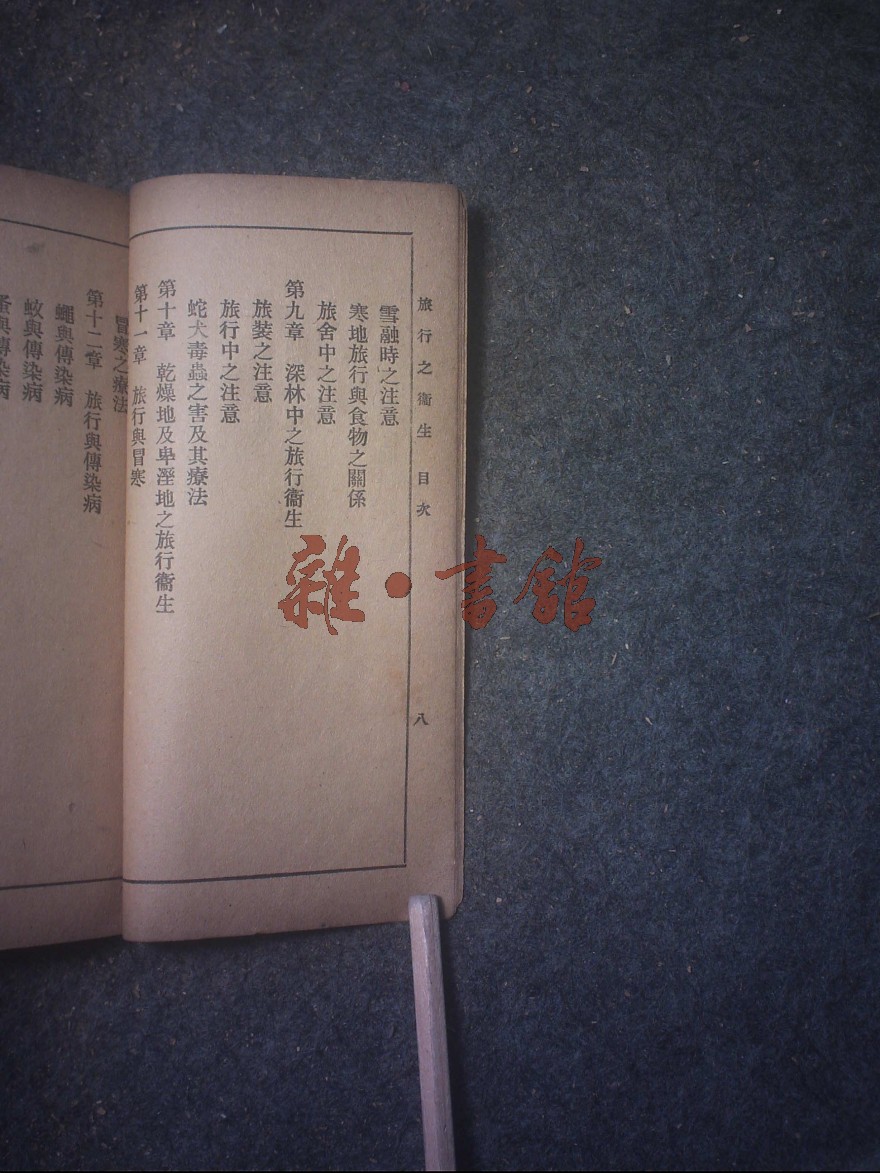 旅行之衞生 目次 八
雪融時之注意
寒地旅行與食物之關係
旅舍中之注意
第九章 深林中之旅行衞生
旅裝之注意
旅行中之注意
蛇犬毒蟲之害及其療法
第十章 乾燥地及卑溼地之旅行衞生
第十一章 旅行與冒寒
冒寒之療法
第十二章 旅行與傳染病
蠅與傳染病
蚊與傳染病
蚤與傳染病
雜·書館